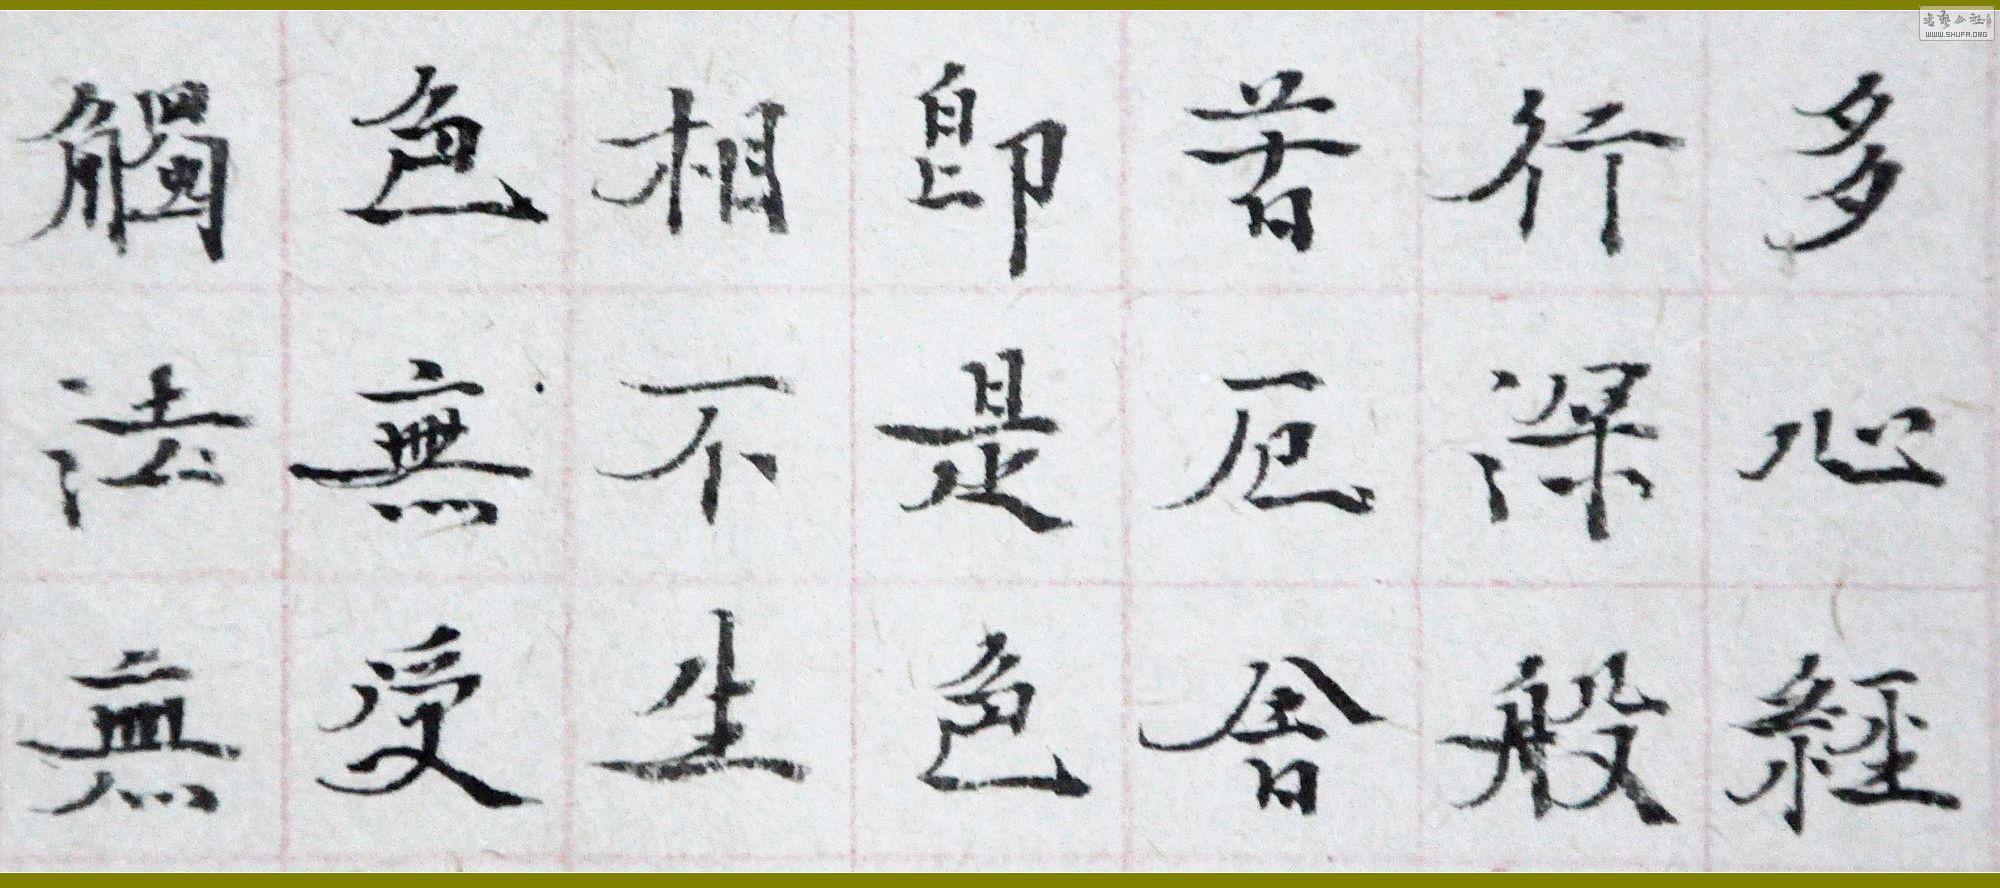 多心經
行深般
苦厄舍
即是色
相不生
色無受
觸法無
書藝公社
WWW.SHUFA.ORG